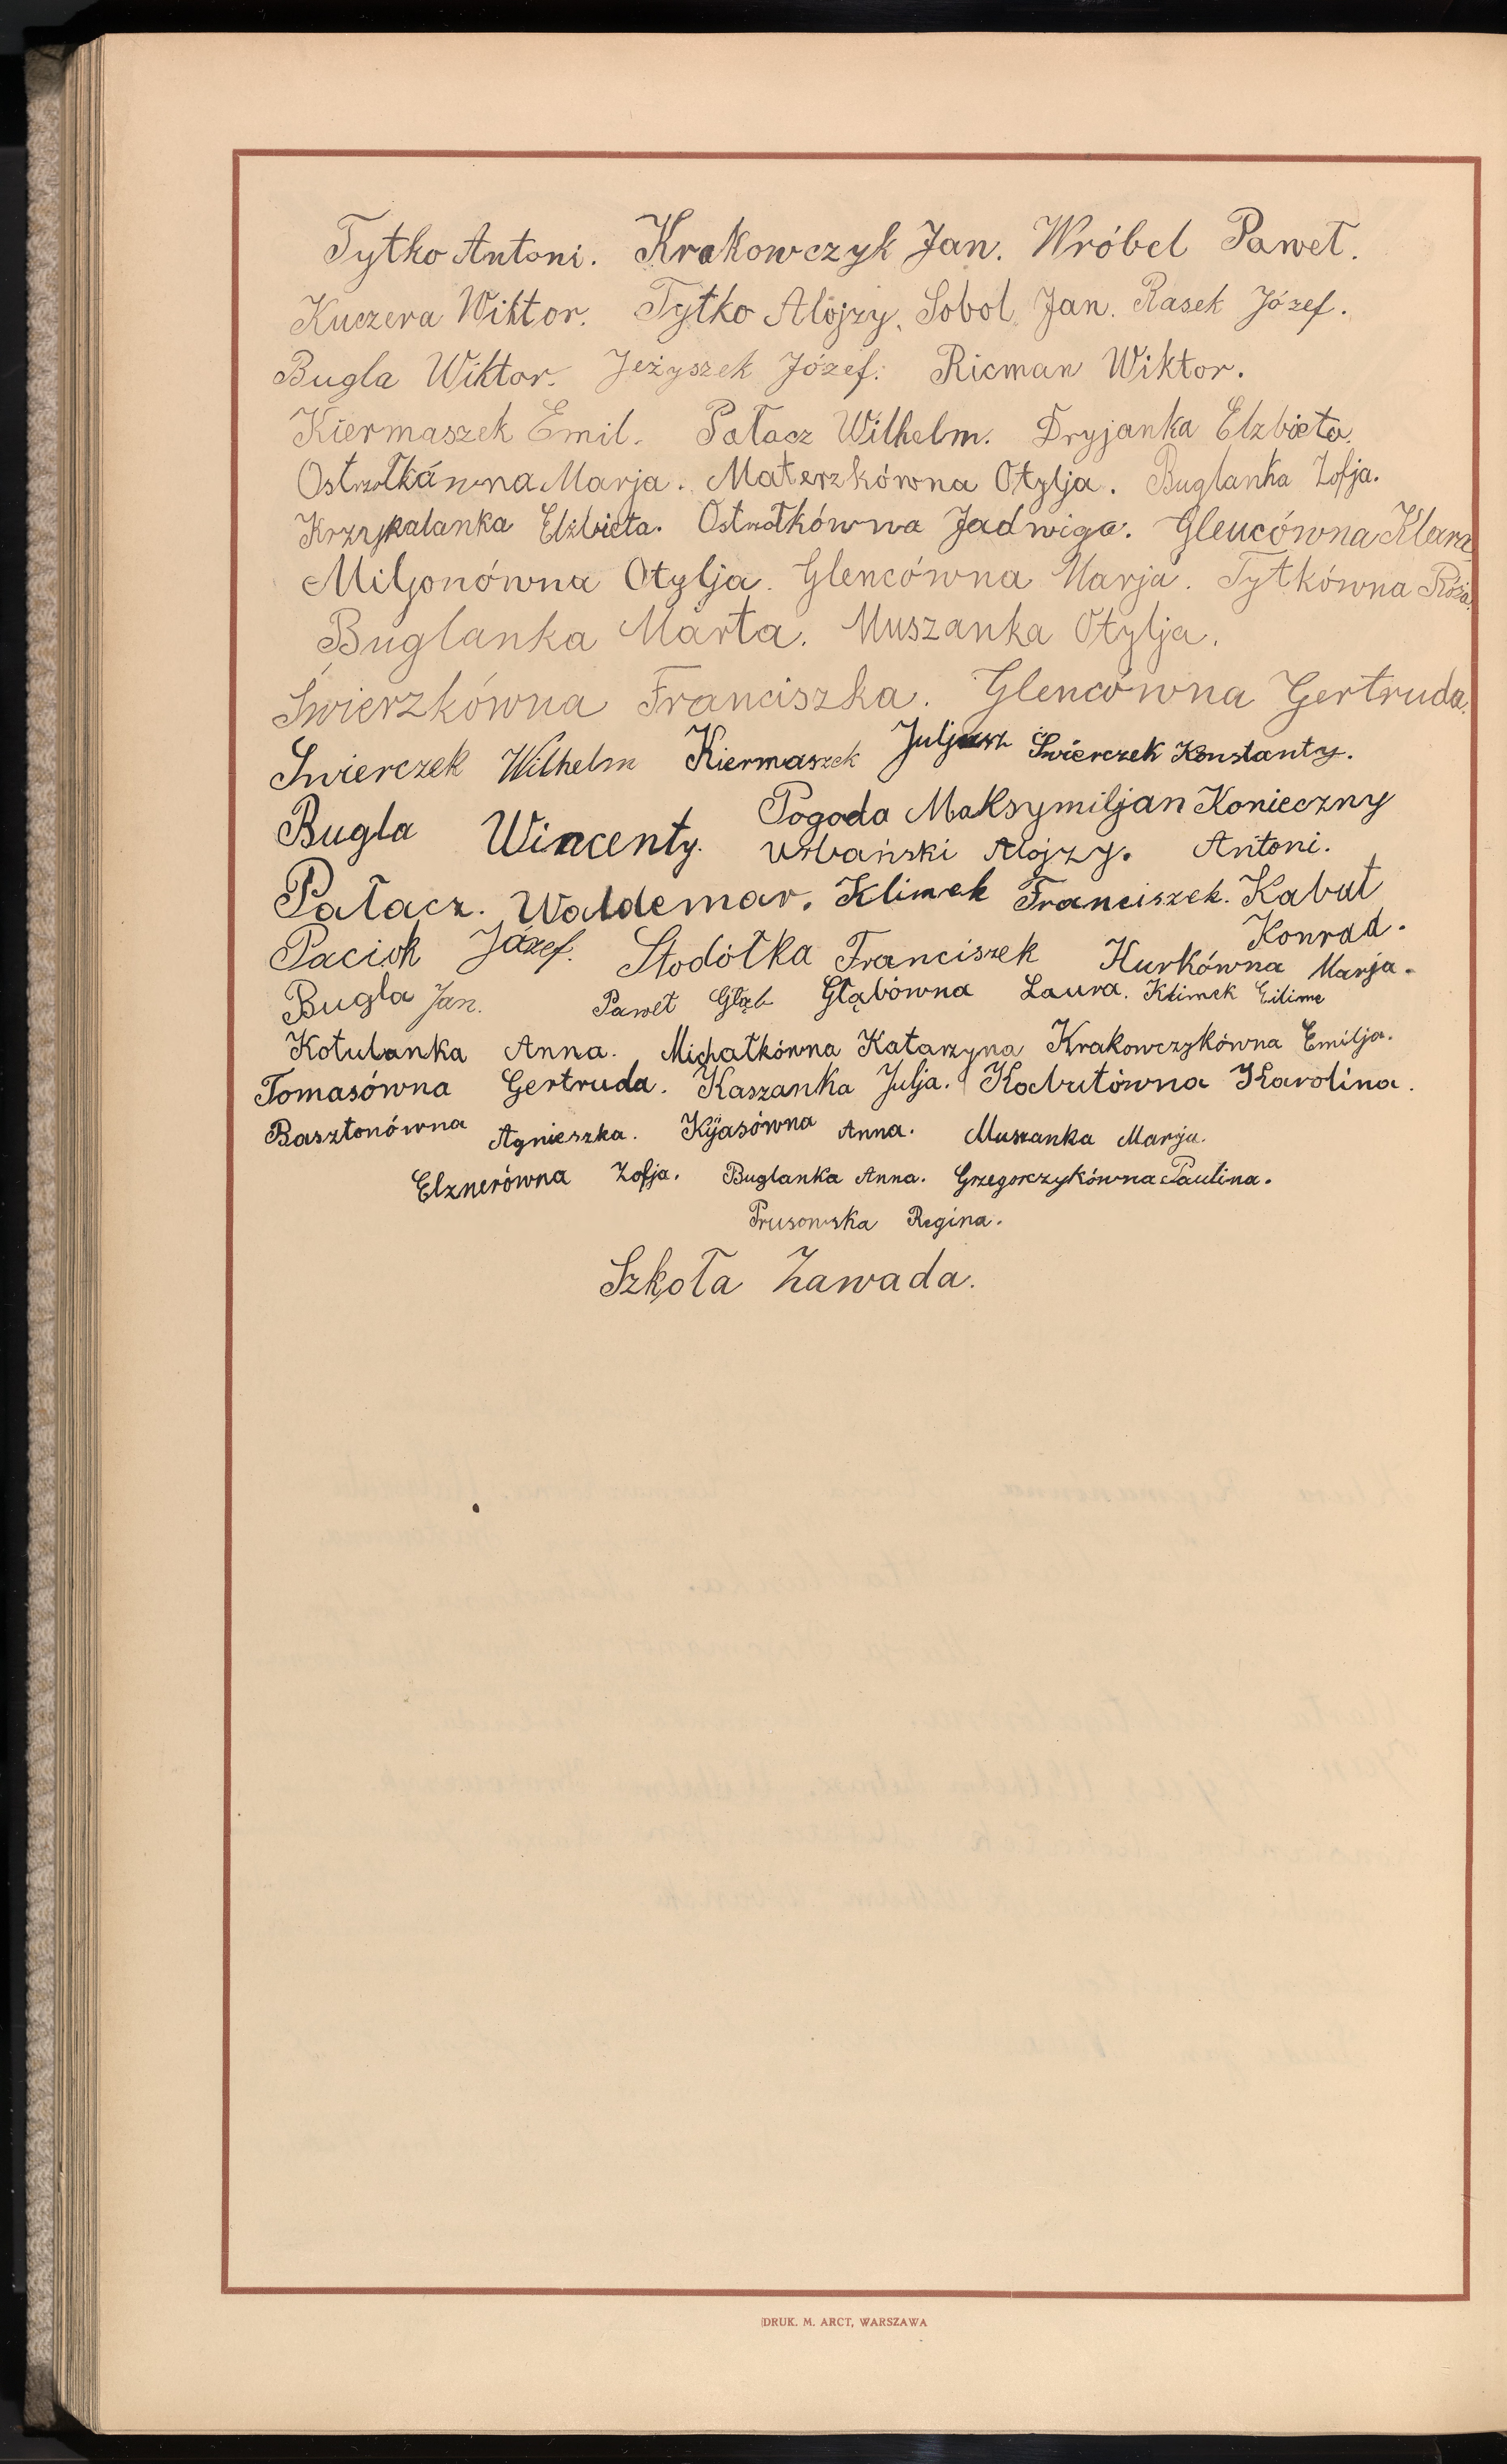 Tytko Antoni. Krakowczyk Jan. Wróbel Paweł.
Kuczera Wiktor. Tytko Alojzy. Sobol Jan. Rasek Józef.
Bugla Wiktor. Jeżyszek Józef. Ricman Wiktor.
Kiermaszek Emil. Pałacz Wilhelm. Dryjanka Elzbieta.
Marja. Materzkówna Otylja. Buglanka Zofja.
Elżbieta. Jadwiga. Glencówna Klara
Miljonówna Otylja. Glencówna Marja. Tytkówna Róża.
Buglanka Marta. Muszanka Otylja.
Świerzkówna Franciszka. Glencówna Gertruda.
Świerczek Wilhelm Kiermaszek Juljusz Świerczek Konstanty.
Bugla Wincenty. Pogoda Maksymiljan Konieczny
Urbański Alojzy. Antoni.
Pałacz. Waldemar. Klimek Franciszek. Kabut
Konrad.
Paciok Józef. Stodółka Franciszek Kurkówna Marja.
Bugla Jan. Paweł Głąb Głąbówna Laura. Klimek
Kotulanka Anna. Michałkówna Katarzyna Krakowczykówna Emilja.
Tomasówna Gertruda. Kaszanka Julja. Karolina.
Basztonówna Agnieszka. Kijasówna Anna. Muszanka Marja.
Elznerówna Zofja. Buglanka Anna. Grzegorczykówna Paulina.
Prusowska Regina.
Szkoła Zawada.
DRUK. M. ARCT, WARSZAWA